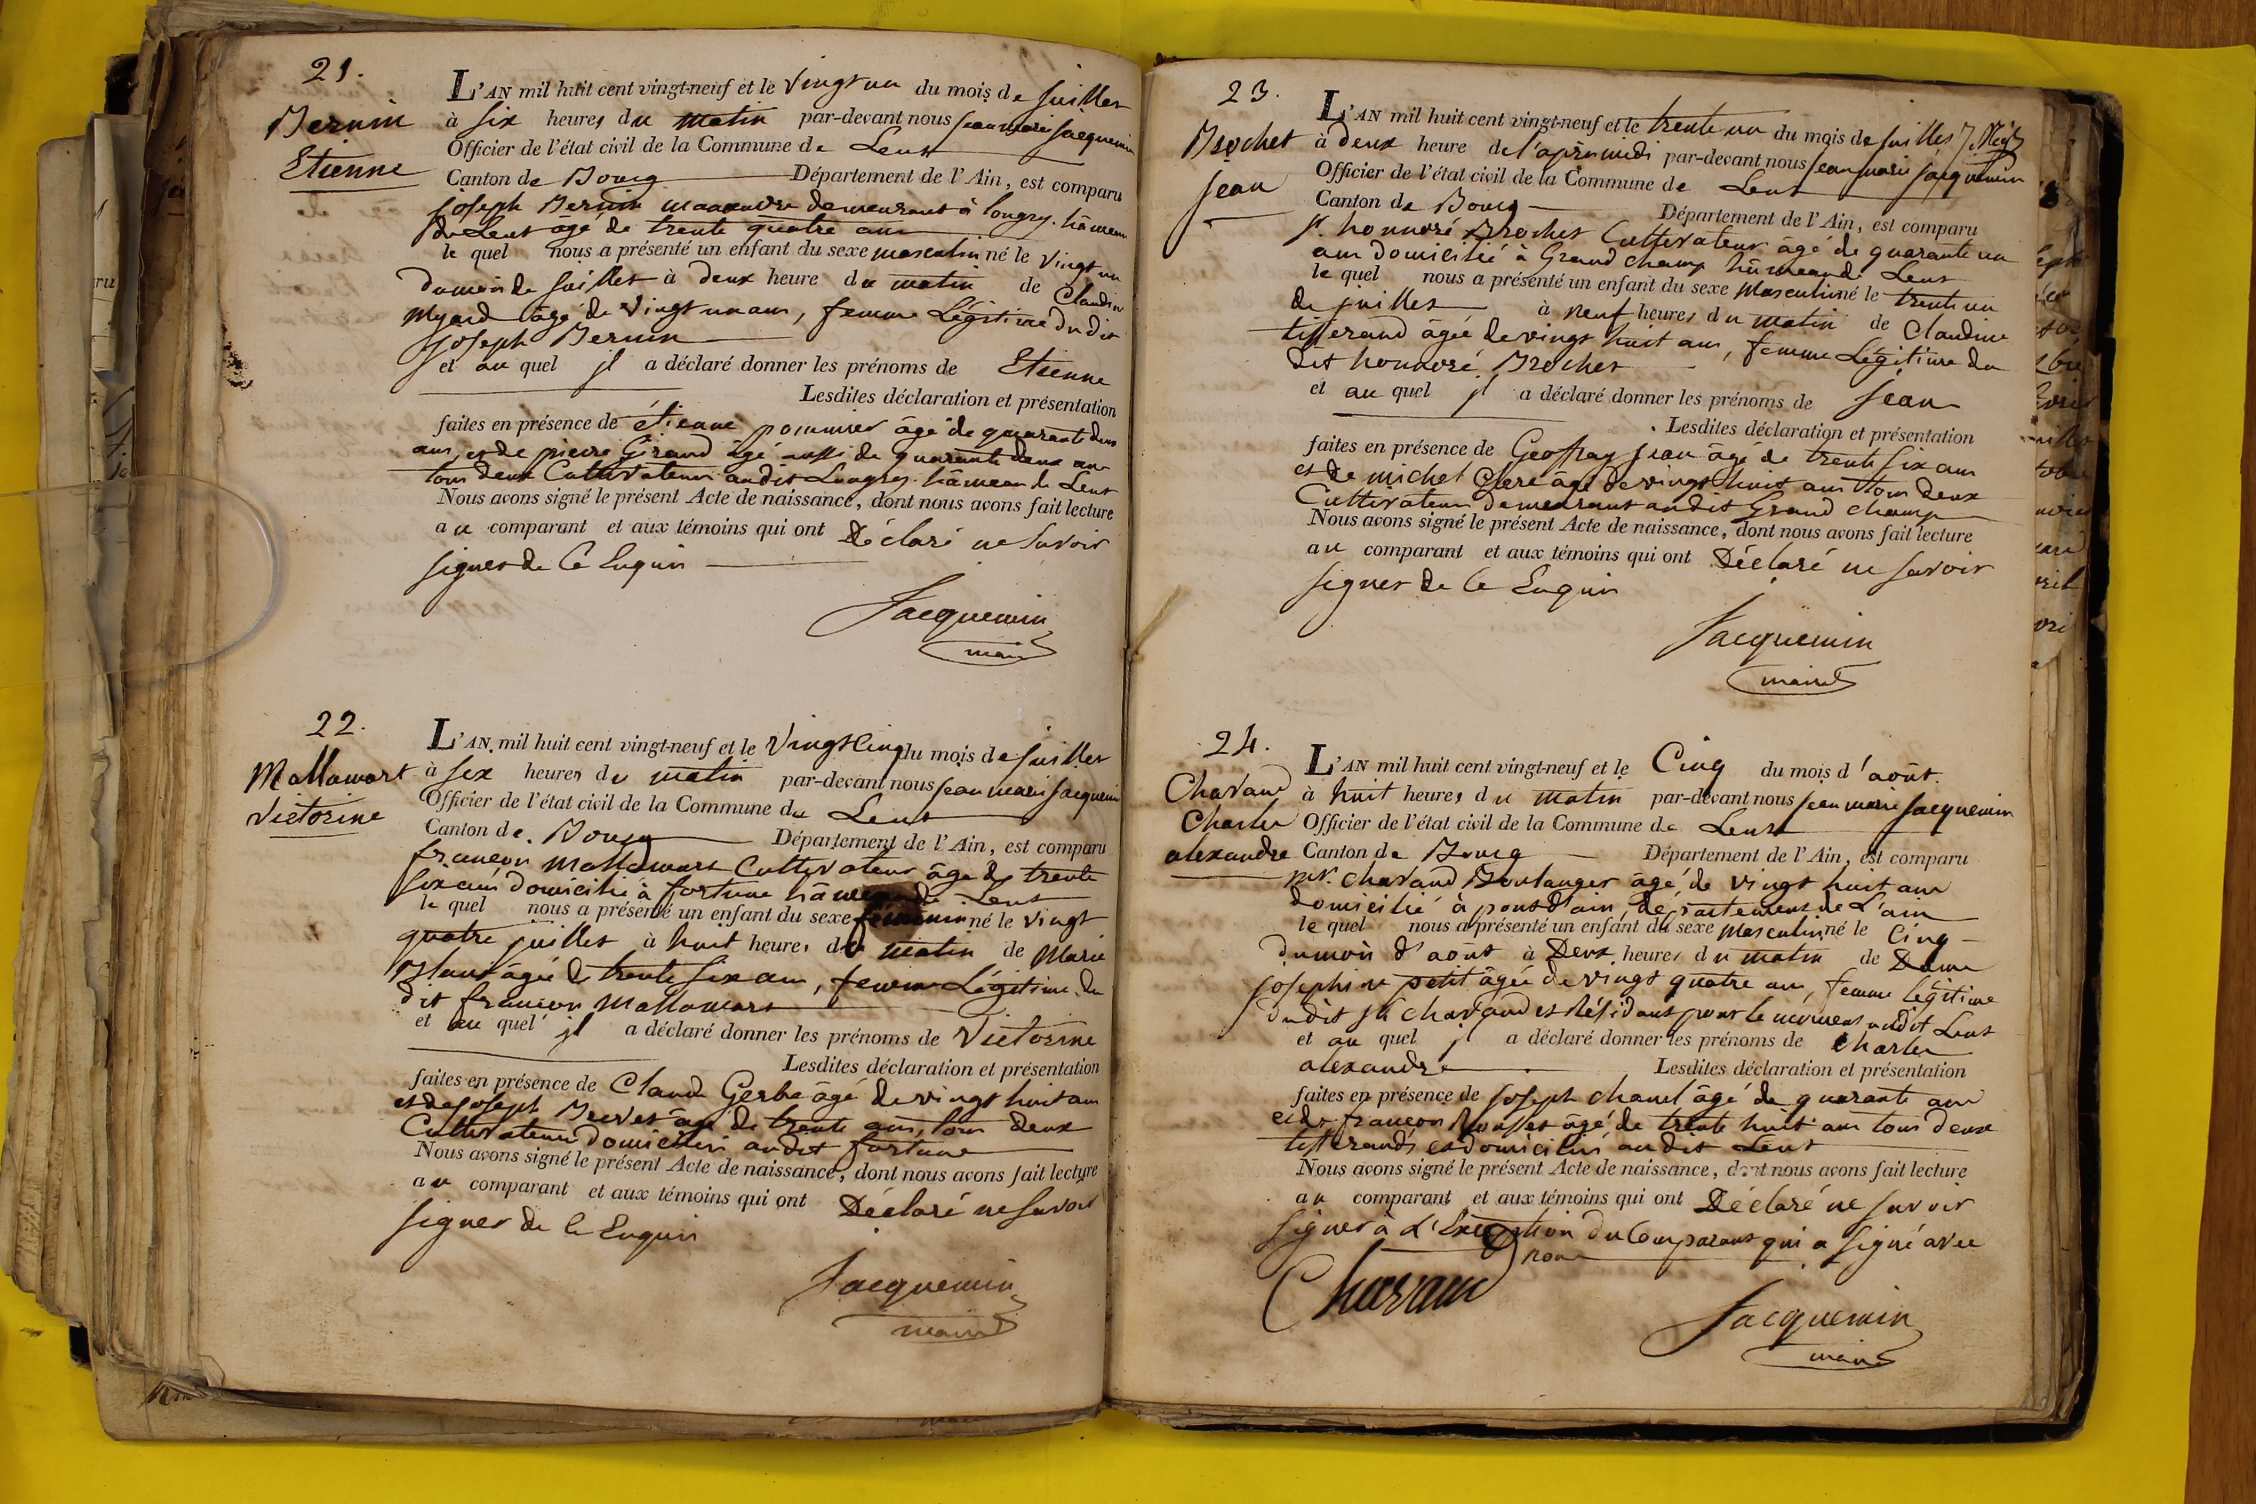 21.
Bernin
Etienne
L'AN mil huit cent vingt-neuf et le vingt un du mois de juillet
à six heures du matin par-devant nous jean marie jacquemin
Officier de l'état civil de la Commune de Lent
Canton de Bourg Département de l'Ain, est comparu
joseph Bernin manœuvre demeurant à longry hâmeau
de Lent âgé de trente quatre ans
le quel nous a présenté un enfant du sexe masculin né le vingt un
du mois de juillet à deux heure du matin de Claudine
Myard âgé de vingt un ans, femme Légitime du dit
joseph Bernin
et au quel jl a déclaré donner les prénoms de Etienne
Lesdites déclaration et présentation
faites en présence de étienne pommier âgé de quarante deux
ans, et de pierre Girand âgé aussi de quarante deux ans
tous deux Cultivateurs audit Longry hâmeau de Lent
Nous avons signé le présent Acte de naissance, dont nous avons fait lecture
au comparant et aux témoins qui ont Déclaré ne savoir
signer de ce Enquis
Jacquemin
maire
22.
Mallamart
Victorine
L'AN mil huit cent vingt-neuf et le vingt Cinq du mois de juillet
à six heures du matin par-devant nous jean marie jacquemin
Officier de l'état civil de la Commune de Lent
Canton de Bourg Département de l'Ain, est comparu
françois Mallamart Cultivateur âgé de trente
six ans domicilié à fortune hâmeau de Lent
le quel nous a présenté un enfant du sexe feminin né le vingt
quatre juillet à huit heures du matin de Marie
âgée de trente six ans, femme Légitime du
dit françois Mallamart
et au quel jl a déclaré donner les prénoms de Victorine
Lesdites déclaration et présentation
faites en présence de Claude Gerbe âgé de vingt huit ans
et de joseph Brevet âgé de trente ans, tous deux
Cultivateurs domiciliés audit fortune
Nous avons signé le présent Acte de naissance, dont nous avons fait lecture
au comparant et aux témoins qui ont Déclaré ne savoir
signer de ce Enquis
Jacquemin
maire
23.
Brochet
jean
L'AN mil huit cent vingt-neuf et le trente un du mois de juillet
à deux heure de l'après midi par-devant nous jean marie jacquemin
Officier de l'état civil de la Commune de Lent
Canton de Bourg Département de l'Ain, est comparu
honnoré Brochet Cultivateur âgé de quarante un
ans domicilié à Grand champ hâmeau de Lent
le quel nous a présenté un enfant du sexe Masculin né le trente un
de juillet à neuf heures du matin de Claudine
tisserand âgée de vingt huit ans, femme Légitime du
dit honnoré Brochet
et au quel jl a déclaré donner les prénoms de jean
Lesdites déclaration et présentation
faites en présence de Geoffray jean âgé de trente six ans
et de michel Clerc âgé de vingt huit ans tous deux
Cultivateurs demeurant audit Grand champ
Nous avons signé le présent Acte de naissance, dont nous avons fait lecture
au comparant et aux témoins qui ont Déclaré ne savoir
signer de ce Enquis
Jacquemin
maire
24.
Chavand
Charles
alexandre
L'AN mil huit cent vingt-neuf et le Cinq du mois d'août
à huit heures du matin par-devant nous jean marie jacquemin
Officier de l'état civil de la Commune de Lent
Canton de Bourg Département de l'Ain, est comparu
chavand Boulanger âgé de vingt huit ans
domicilié à pont d'ain, département de L'ain
le quel nous a présenté un enfant du sexe Masculin né le Cinq
du mois d'août à Deux heures du matin de Dame
josephine petit âgée de vingt quatre ans, femme légitime
dudit sr. chavand et Résidant pour le moment audit Lent
et au quel jl a déclaré donner les prénoms de Charles
alexandre Lesdites déclaration et présentation
faites en présence de joseph chanel âgé de quarante ans
et de françois Rousset âgé de trente huit ans tous deux
tisserands et domiciliés audit Lent
Nous avons signé le présent Acte de naissance, dont nous avons fait lecture
au comparant et aux témoins qui ont Déclaré ne savoir
signer à L'Exception du Comparant qui a signé avec
nous
Chavand
Jacquemin
maire